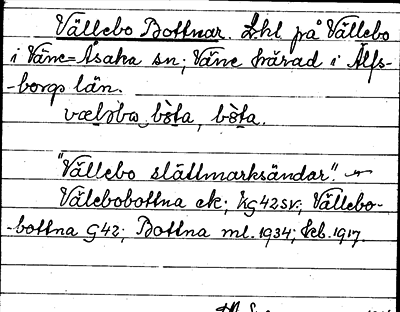 Vällebo Bottnar. Lhl på Vällebo
i Väne-Åsaka sn, Väne härad i Älfs-
-borgs län.
bòta, bòta.
"Vällebo slättmarksändar".
Välebobottna ek; Kg42sv; Vällebo-
-bottna G42; Bottna ml. 1934; Keb. 1917.